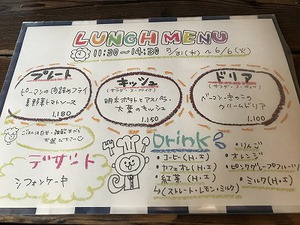 LUNCH MENU
11:30〜14:30 5/31(水)〜6/6(火)
プレート
ピーマンの肉詰めフライ
夏野菜トマトソース
1,180
キッシュ
(サラダ・スープ付)
明太ポテトとアスパラ、
大葉のキッシュ
1,150
ドリア
(サラダ・スープ付)
ベーコンときのこの
クリームドリア
1,100
ごはんは白米・雑穀米から
デザート
シフォンケーキ
Drink
・コーヒー(H・I)
・カフェオレ(H・I)
・紅茶(H・I)
(ストレート・レモン・ミルク)
・りんご
・オレンジ
・ピンクグレープフルーツ
・ミルク(H・I)